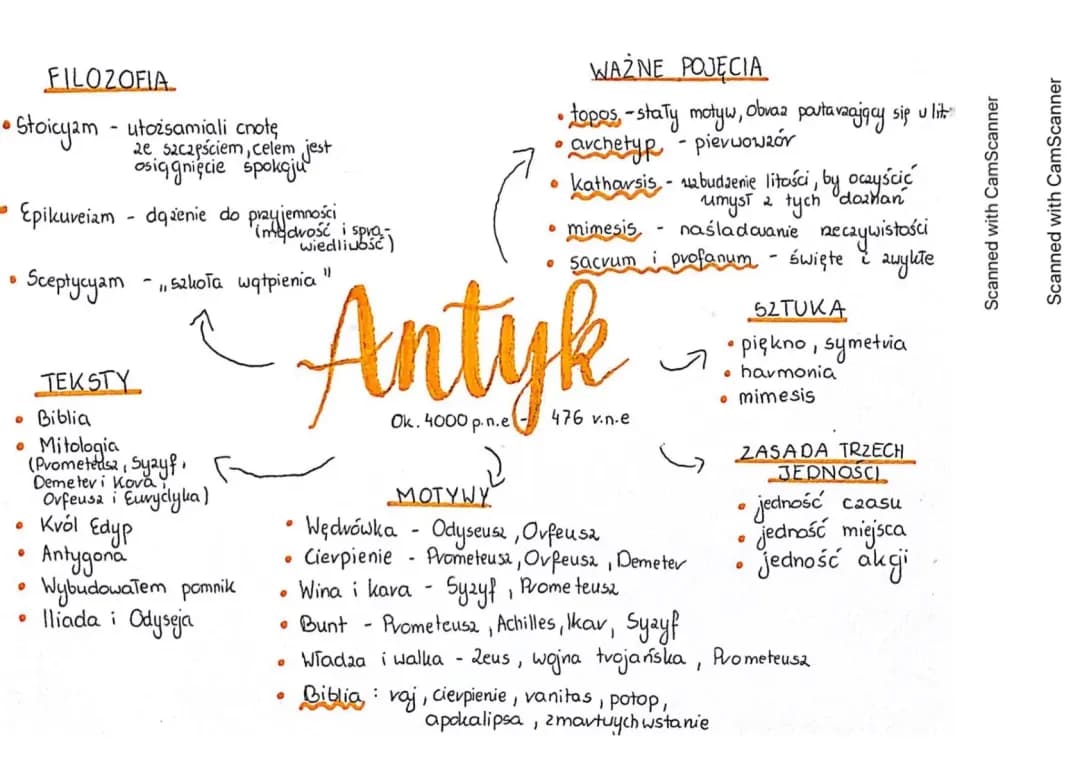 FILOZOFIA
• Stoicyzm - utożsamiali cnotę
ze szczęściem, celem jest
osiągnięcie spokoju
• Epikureizm - dążenie do przyjemności
(mądrość i spra-
wiedliwość)
• Sceptycyzm - „szkoła wątpienia"
WAŻNE POJĘCIA
• topos - stały motyw, obraz powtarzający się w lit
• archetyp - pierwowzór
• katharsis - wzbudzenie litości, by oczyścić
umysł z tych doznań
• mimesis - naśladowanie rzeczywistości
• sacrum i profanum - święte i zwykłe
Antyk
Ok. 4000 p.n.e - 476 r.n.e
SZTUKA
• piękno, symetria
• harmonia
• mimesis
TEKSTY
• Biblia
• Mitologia
(Prometeusz, Syzyf,
Demeter i Kora,
Orfeusz i Eurydyka)
• Król Edyp
• Antygona
• Wybudowałem pomnik
• Iliada i Odyseja
MOTYWY
• Wędrówka - Odyseusz, Orfeusz
• Cierpienie - Prometeusz, Orfeusz, Demeter
• Wina i kara - Syzyf, Prometeusz
• Bunt - Prometeusz, Achilles, Ikar, Syzyf
• Władza i walka - Zeus, wojna trojańska, Prometeusz
• Biblia: raj, cierpienie, vanitas, potop,
apokalipsa, zmartwychwstanie
ZASADA TRZECH
JEDNOŚCI
• jedność czasu
• jedność miejsca
• jedność akcji
Scanned with CamScanner
Scanned with CamScanner